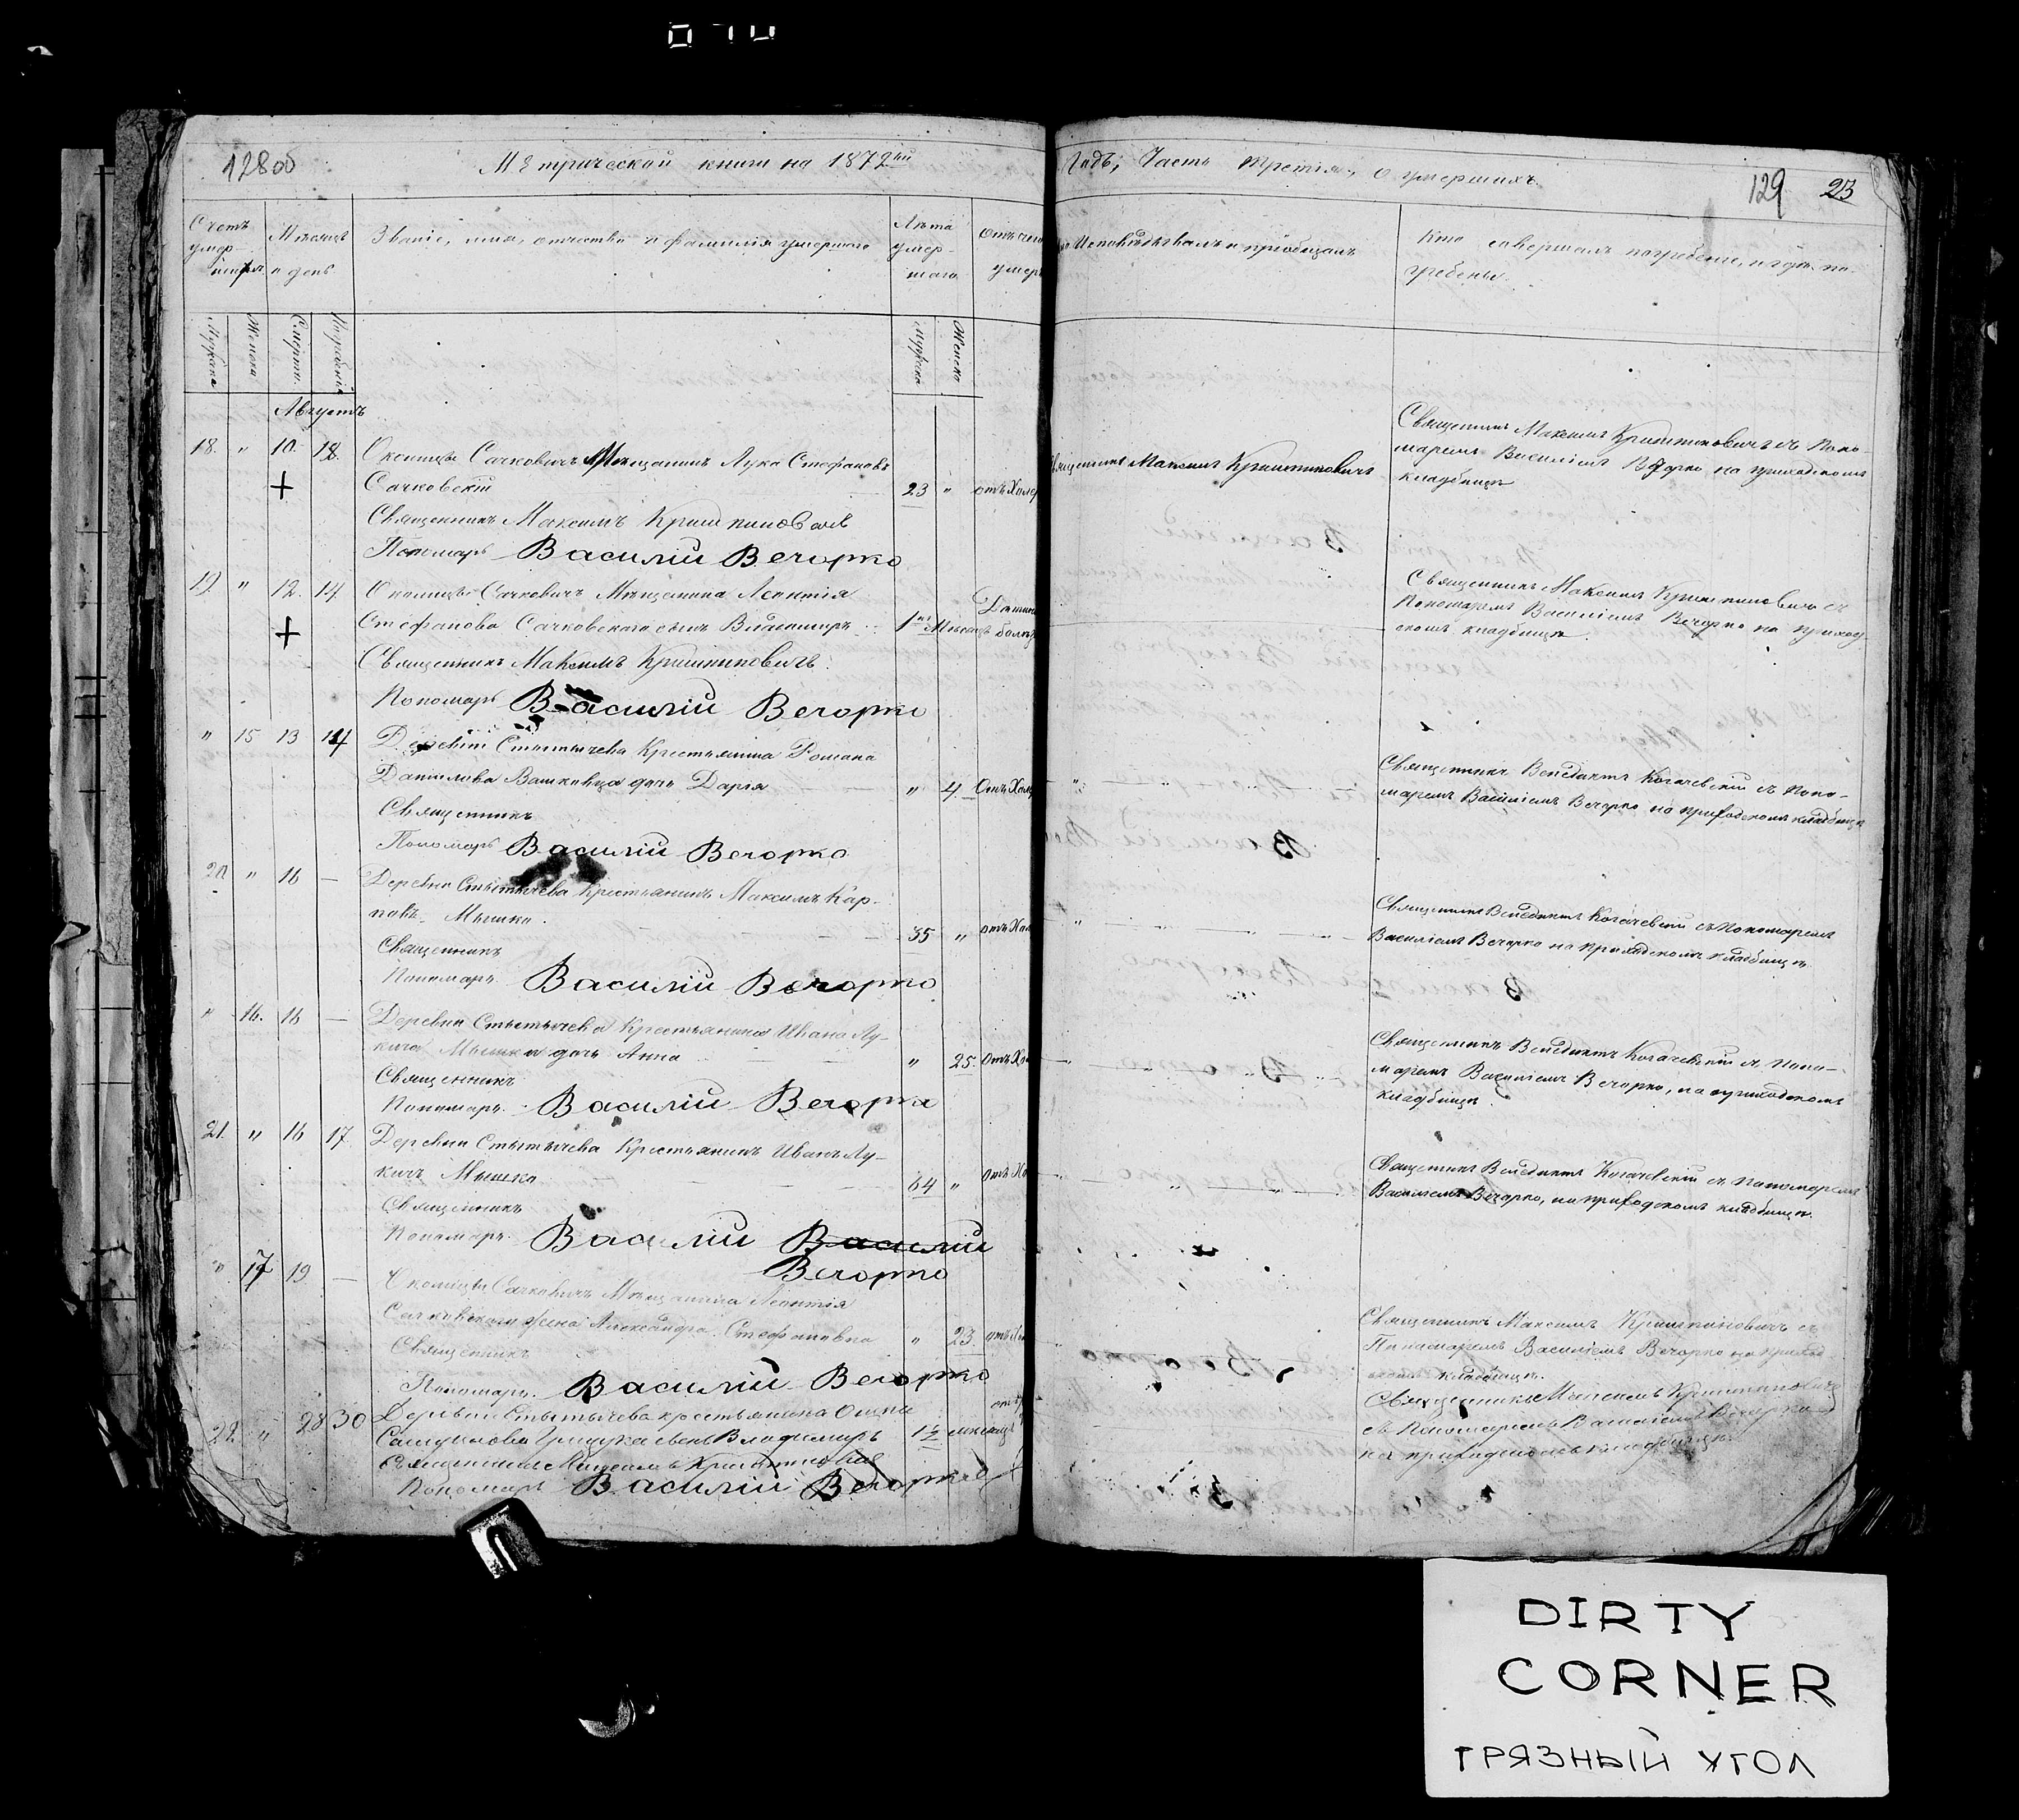 128об
Метрической книги на 1872ый
Годъ, Часть третія, о умершихъ.
129 23
Счетъ умер-шихъ
Мѣсяцъ и день
Званіе, имя, отчество и фамилія умершаго
Лѣта умер-шаго
Отъ чего умеръ
Исповѣдывалъ и пріобщалъ
Кто совершалъ погребеніе, и гдѣ по-
гребены.
Мужска
Женска
Смерти.
Погребенія
Мужска
Женска
Августъ
18. " 10. 18. Околицы Сачковичъ Мѣщанинъ Лука Стефановъ
Сачковскій 23 " отъ Холер
Священникъ Максимъ Кришпиновичъ
Пономаръ Василій Вечорко
Священникъ Максимъ Кришпиновичъ
Священникъ Максимъ Кришпиновичъ съ Поно-
маремъ Василіемъ Вечорко на приходскомъ
кладбищѣ
19. " 12. 14 Околицы Сачковичъ Мѣщанина Леонтія
Стефанова Сачковскаго сынъ Владиміръ 1 Мѣсяцъ
Священникъ Максимъ Кришпиновичъ.
Пономаръ Василій Вечорко
Священникъ Максимъ Кришпиновичъ съ
Пономаремъ Василіемъ Вечорко на приход-
скомъ кладбищѣ.
" 15 13 14 Деревни Стытычева Крестьянина Романа
Данилова Вашковца дочь Дарія " 4. Отъ Хол
Священникъ
Пономаръ Василій Вечорко
Священникъ Венедиктъ Когачевскій съ Поно-
маремъ Василіемъ Вечорко на приходскомъ кладбищѣ
20 " 16 — Деревни Стытычева Крестьянинъ Максимъ Кар-
повъ Мышко. 35 " отъ Хол
Священникъ
Пономаръ Василій Вечорко
Священникъ Венедиктъ Когачевскій съ Пономаремъ
Василіемъ Вечорко на Приходскомъ кладбищѣ
" 16. 16 — Деревни Стытычева Крестьянина Ивана Лу-
кича Мышка дочь Анна " 25. Отъ Хол
Священникъ
Пономаръ. Василій Вечорко
Священникъ Венедиктъ Когачевскій съ Поно-
маремъ Василіемъ Вечорко, на приходскомъ
кладбищѣ.
21. " 16 17. Деревни Стытычева Крестьянинъ Иванъ Лу-
кичъ Мышко 64 " отъ Хо
Священникъ
Пономаръ. Василій Василій
Вечорко
Священникъ Венедиктъ Когачевскій съ Пономаремъ
Василіемъ Вечорко, на приходскомъ кладбищѣ.
" 17 19 — Околицы Сачковичъ Мѣщанина Леонтія
Сачковскаго жена Александра Стефановна " 23.
Священникъ
Пономаръ. Василій Вечорко
Священникъ Максимъ Кришпиновичъ съ
Пономаремъ Василіемъ Вечорко на приход-
скомъ кладбищѣ.
22. " 28 30 Деревни Стытычева крестьянина Осипа
Самуилова Грицука сынъ Владиміръ 1½ мѣсяцъ
Священникъ Максимъ Кришпиновичъ
Пономаръ Василій Вечорко
Священникъ Максимъ Кришпиновичъ
съ Пономаремъ Василіемъ Вечорко
на приходскомъ кладбищѣ.
DIRTY
CORNER
ГРЯЗНЫЙ УГОЛ